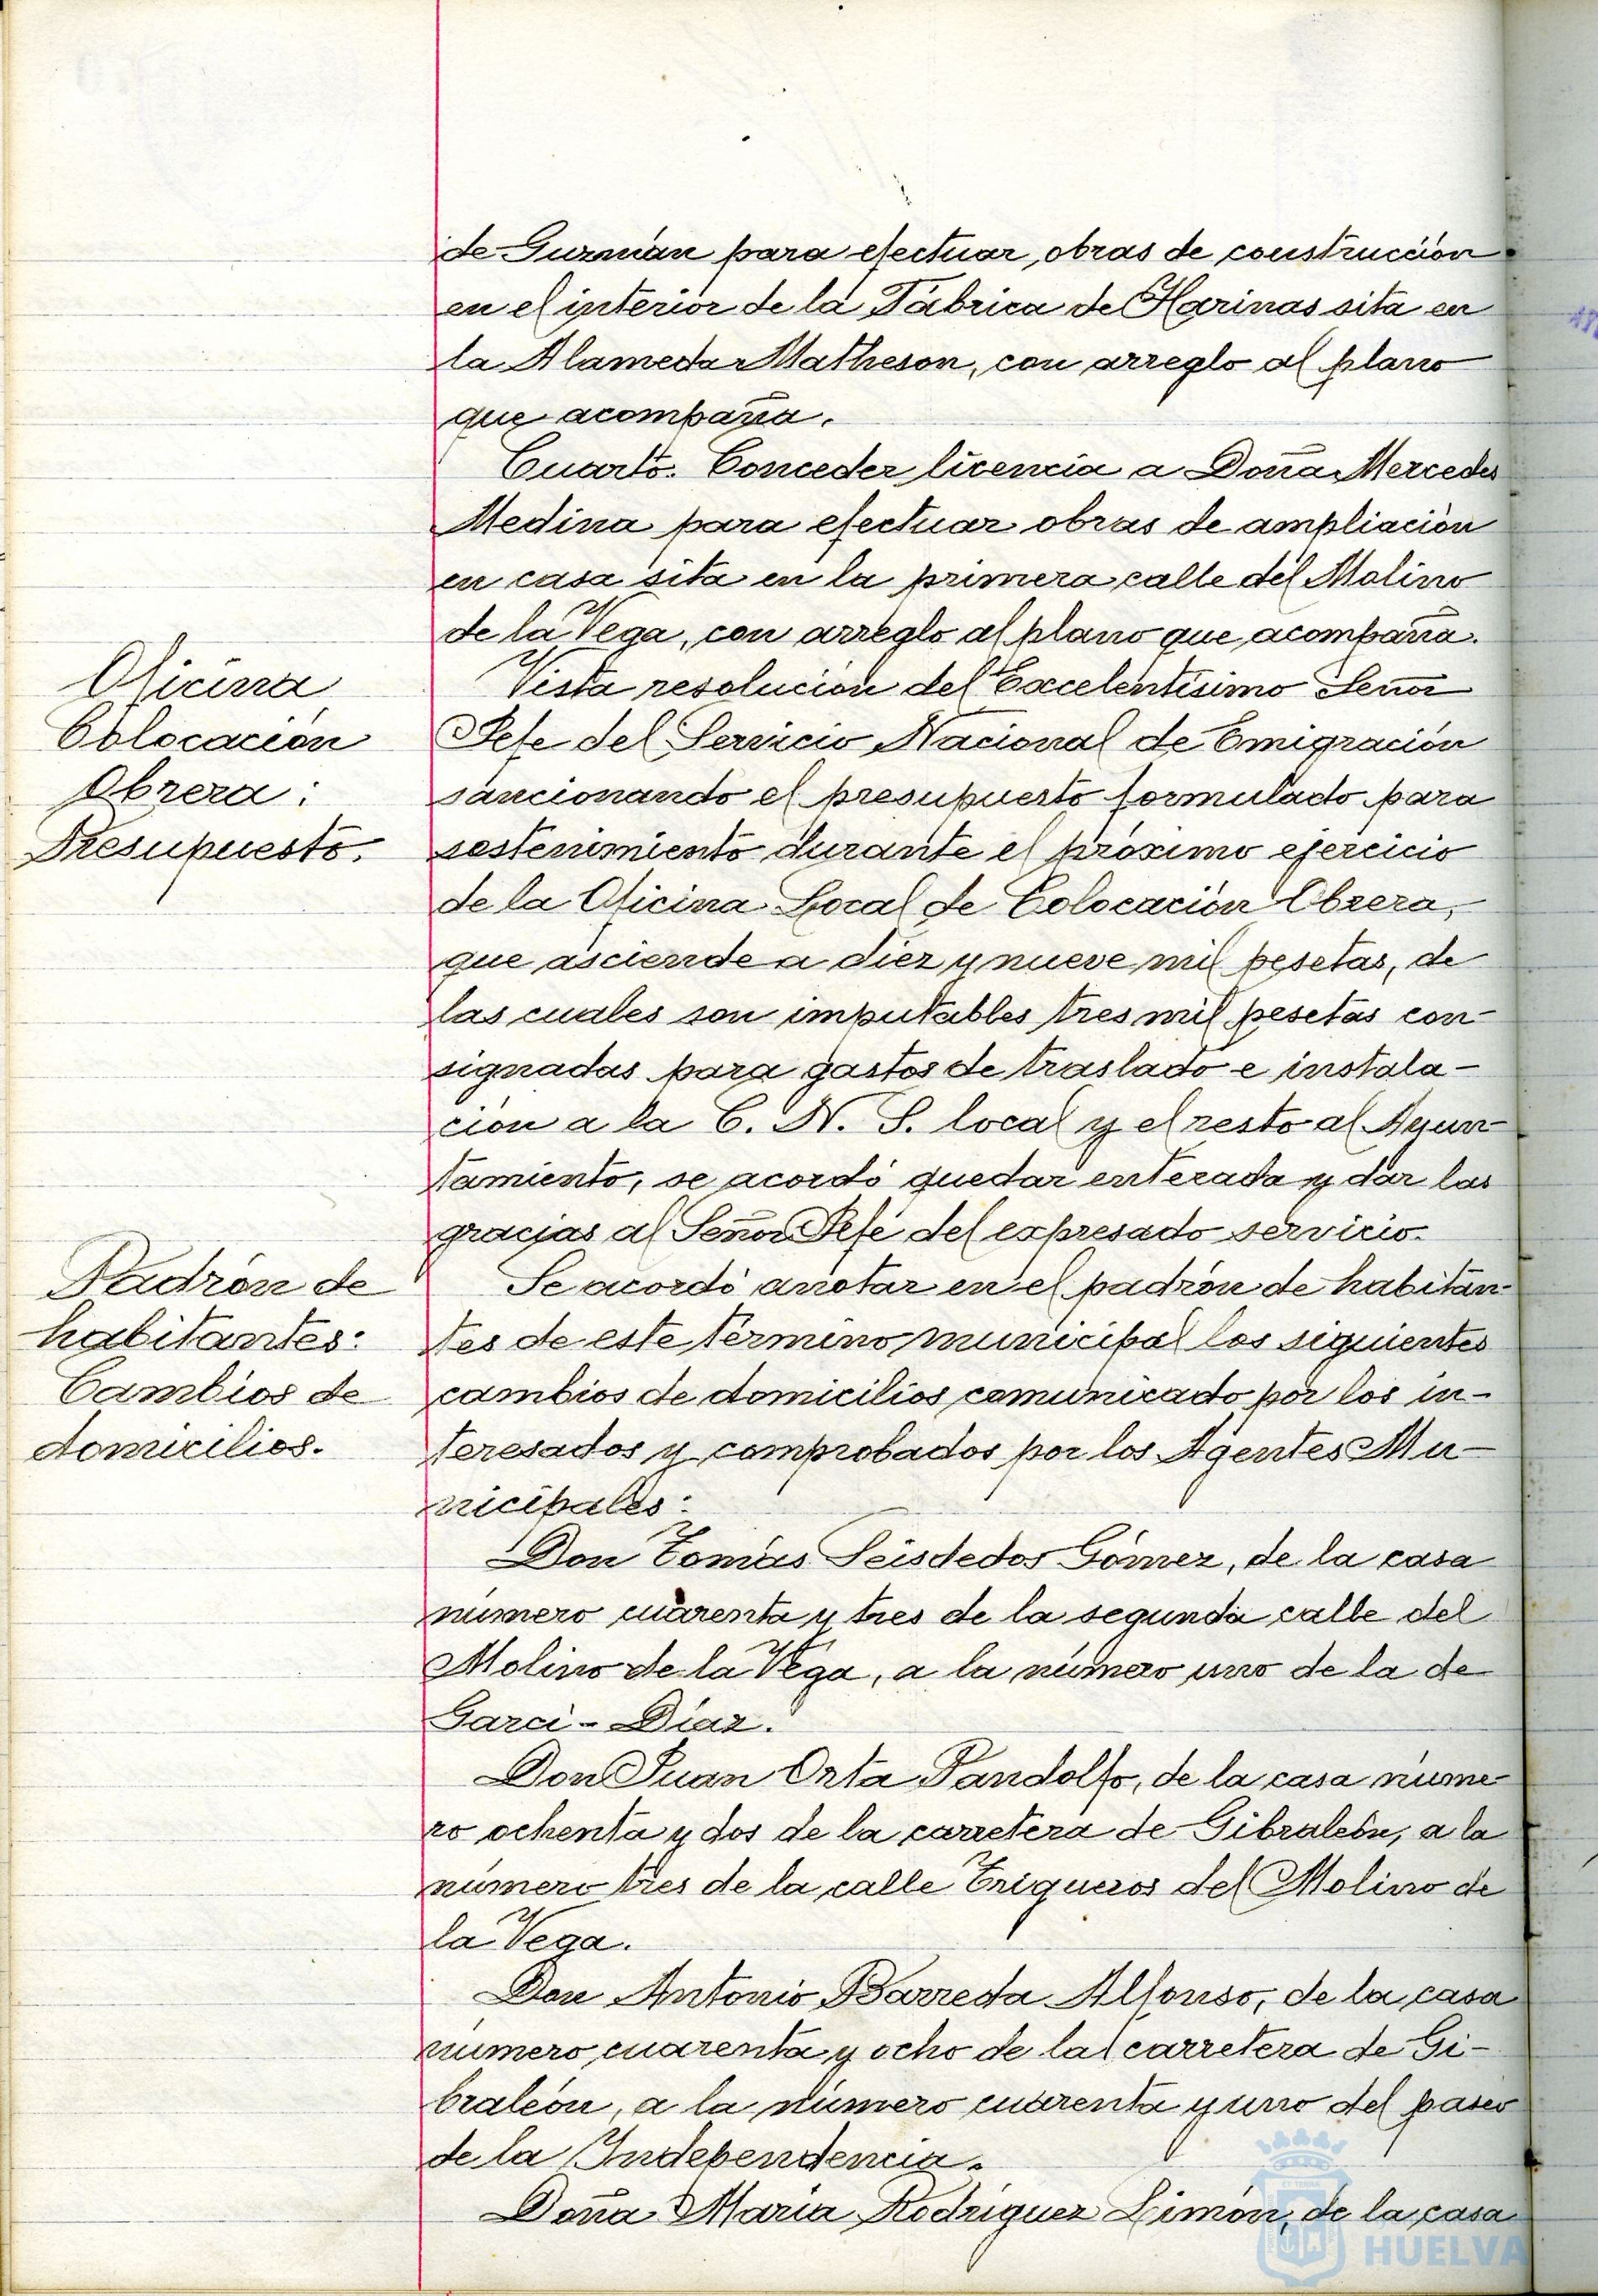 de Guzmán para efectuar, obras de construcción
en el interior de la Fábrica de Harinas sita en
la Alameda Matheson, con arreglo al plano
que acompaña.
Cuarto. Conceder licencia a Doña Mercedes
Medina para efectuar obras de ampliación
en casa sita en la primera calle del Molino
de la Vega, con arreglo al plano que acompaña.
Oficina
Colocación
Obrera:
Presupuesto.
Vista resolución del Excelentísimo Señor
Jefe del Servicio Nacional de Emigración
sancionando el presupuesto formulado para
sostenimiento durante el próximo ejercicio
de la Oficina Local de Colocación Obrera,
que asciende a diez y nueve mil pesetas, de
las cuales son imputables tres mil pesetas con-
signadas para gastos de traslado e instala-
ción a la C. N. S. local y el resto al Ayun-
tamiento, se acordó quedar enterada y dar las
gracias al Señor Jefe del expresado servicio.
Padrón de
habitantes:
Cambios de
domicilios.
Se acordó anotar en el padrón de habitan-
tes de este término municipal los siguientes
cambios de domicilios comunicado por los in-
teresados y comprobados por los Agentes Mu-
nicipales:
Don Tomás Seisdedos Gómez, de la casa
número cuarenta y tres de la segunda calle del
Molino de la Vega, a la número uno de la de
Garci-Díaz.
Don Juan Orta Pandolfo, de la casa núme-
ro ochenta y dos de la carretera de Gibraleón, a la
número tres de la calle Trigueros del Molino de
la Vega.
Don Antonio Barreda Alfonso, de la casa
número cuarenta y ocho de la carretera de Gi-
braleón, a la número cuarenta y uno del paseo
de la Independencia.
Doña María Rodríguez Limón, de la casa
HUELVA